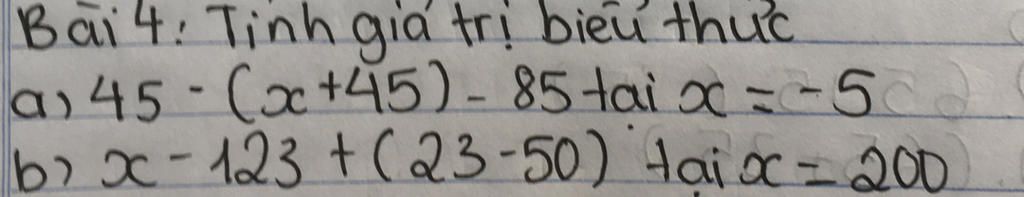 Bài 4: Tính giá trị biểu thức
a) 45 - (x + 45) - 85 tại x = -5
b) x - 123 + (23 - 50) tại x = 200